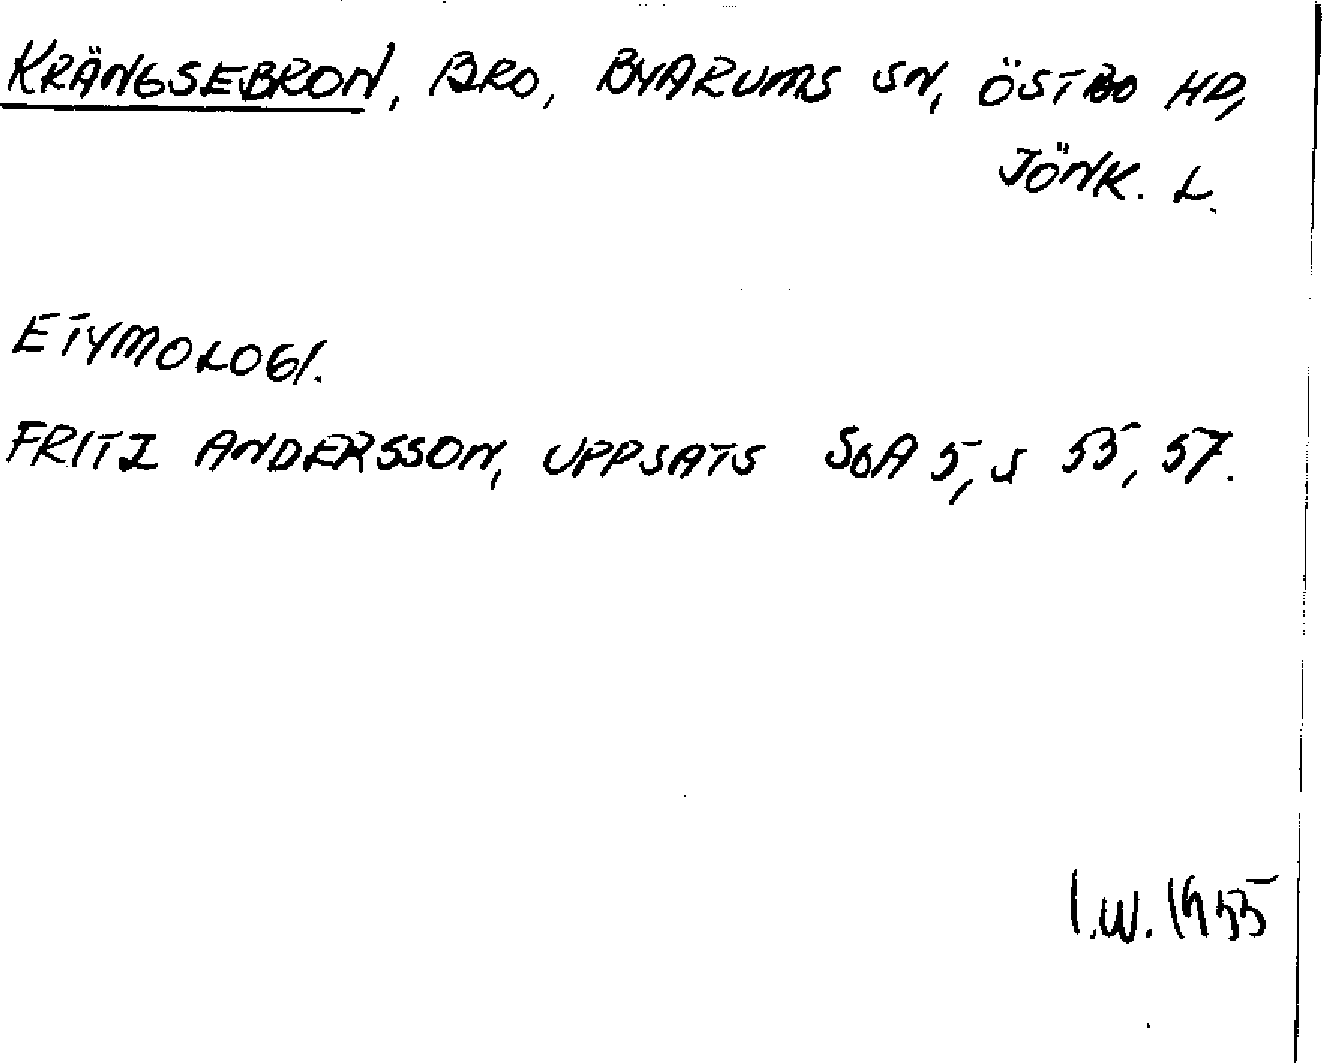 KRÄNGSEBRON, BRO, BYARUMS SN, ÖSTBO HD,
JÖNK. L.
ETYMOLOGI.
FRITZ ANDERSSON, UPPSATS SOA 5, S 55, 57.
I.W. 1955